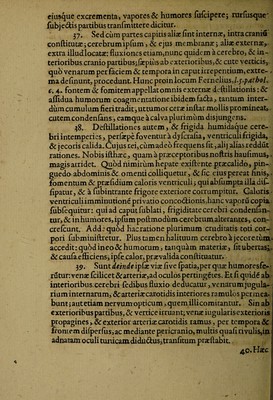 eiusque excrementa, vapores & humores suscipere; rursusque
subiectis partibus transmittere dicitur.
37. Sed cùm partes capitis aliæ sint internæ, intra craniū
constitutæ, cerebrum ipsum, & eius membranæ; aliæ externæ,
extra illud locatæ: fluxiones etiam, nunc quidem à cerebro, & in-
terioribus cranio partibus; sæpiùs ab exterioribus, & cute verticis,
quò venarum per faciem & tempora in caput irrepentium, extre-
ma desinunt, procedunt. Hunc penu locum Fernelius, l. 5. pathol.
c. 4. fontem & fomitem appellat omnis externæ destillationis: &
assidua humorum coagmentatione ibidem factâ, tantum inter-
dùm cumulum fieri tradit, ut tumor ceræ instar mollis promineat.
eutem condensans, eamque à calva plurimùm disiungens.
38. Destillationis autem, & frigida humidaque cere-
bri intemperies, persæpè foventur à dyscrasia, ventriculi frigida,
& iecoris calida. Cuius rei, cùm adeò frequens sit, alij alias reddūt
rationes. Nobis isthæc, quam à præceptoribus nostris hausimus,
magis arridet. Quòd nimirùm hepate existente præcalido, pin-
guedo abdominis & omenti colliquetur, & sic eius pereat finis,
fomentum & præsidium caloris ventriculi; qui absumpta illa dis-
sipatur, & à subintrante frigore exteriore corrumpitur. Caloris
ventriculi imminutionē privatio concoctionis, hanc vaporū copia
subsequitur: qui ad caput sublati, frigiditate cerebri condensān-
tur, & in humores, ipsum postmodùm cerebrum alterantes, con-
crescunt. Adde: quòd hac ratione plurimum cruditatis toti cor-
pori subministretur. Plus tamen halituum cerebro à iecore tùm
accedit: quòd in eo & humorum, tanquam materiæ, sit ubertas;
& causa efficiens, ipse calor, prævalida constituatur.
39. Sunt deinde ipsæ viæ sive spatia, per quæ humores fe-
rūtur: venæ scilicet & arteriæ, ad oculos pertingētes. Et si quidē ab
interioribus cerebri sedibus fluxio deducatur, venarum jugula-
rium internarum, & arteriæ carotidis interiores ramulos permea-
bunt; aut etiam nervum opticum, quem illi comitantur. Sin ab
exterioribus partibus, & vertice irruant; venæ iugularis exterioris
propagines, & exterior arteriæ carotidis ramus, per tempora &
frontem dispersus, ac mediante pericranio, multis quasi rivulis, in
adnatam oculi tunicam diductus, transitum præstabit.
40. Hæc